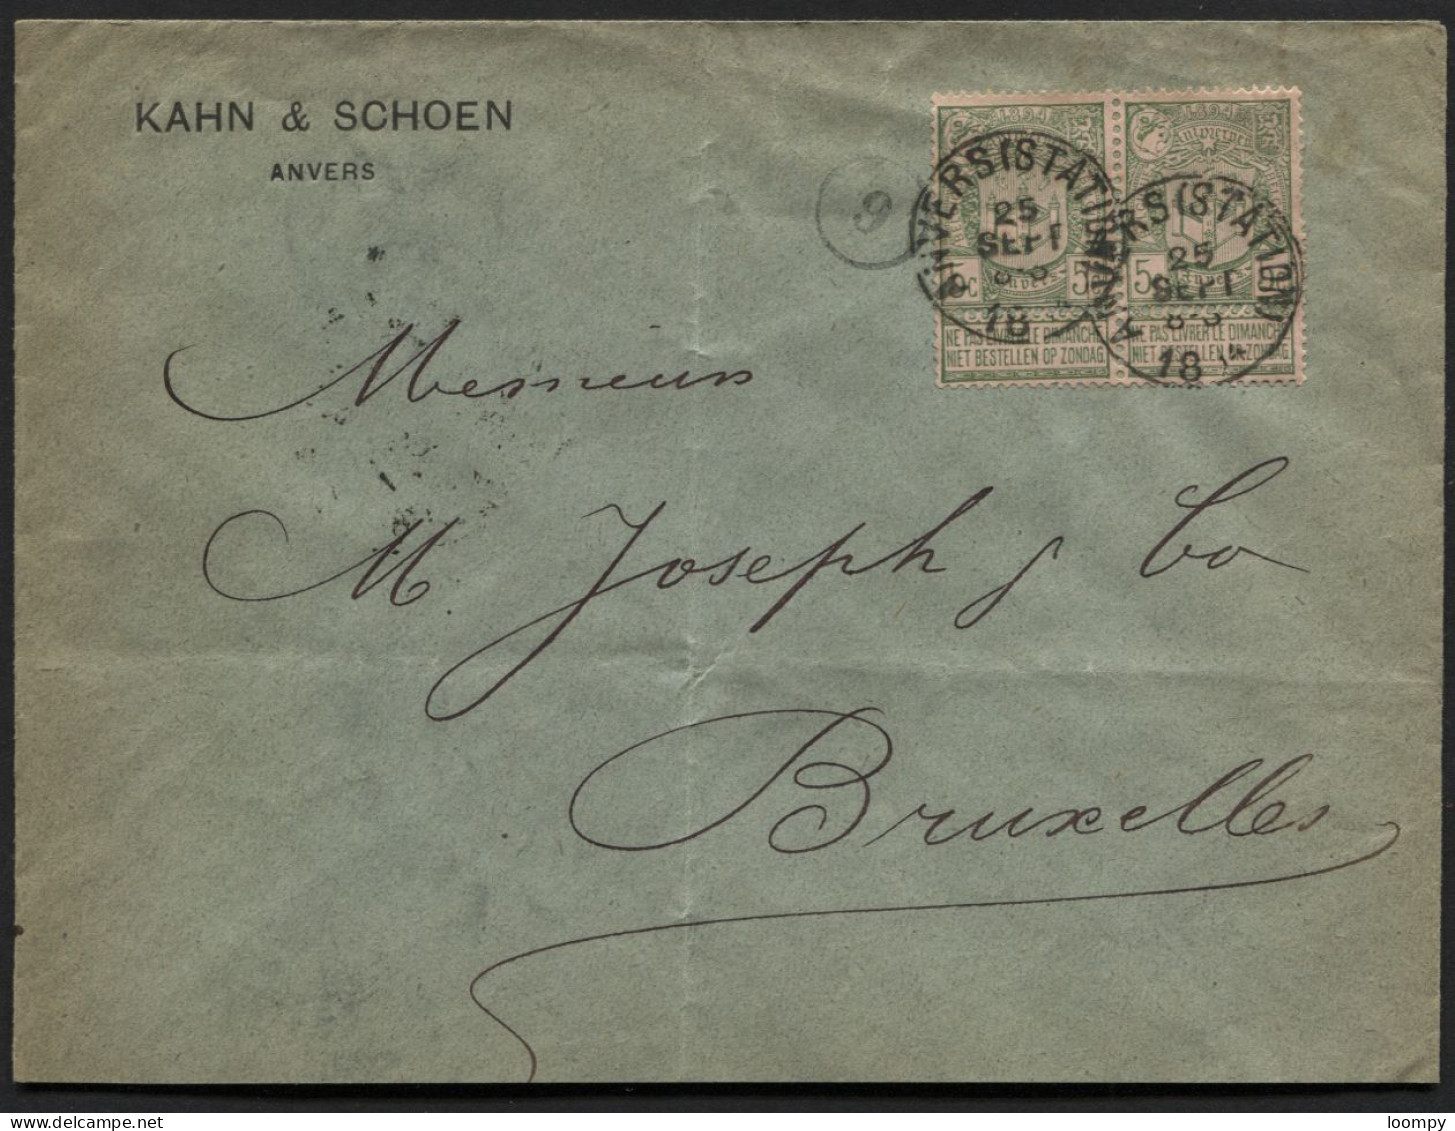 KAHN & SCHOEN
ANVERS
9
1894
Antwerpen
Anvers
5c
NE PAS LIVRER LE DIMANCHE
NIET BESTELLEN OP ZONDAG
1894
Antwerpen
5c
Anvers
NE PAS LIVRER LE DIMANCHE
NIET BESTELLEN OP ZONDAG
ANVERS (STATION)
25
SEPT
8-S
18
ANVERS (STATION)
25
SEPT
8-S
18
Messieurs
M Joseph & Co
Bruxelles
loompy